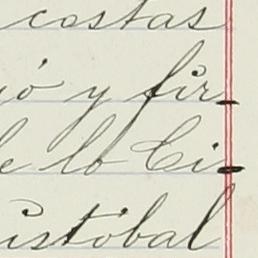 costas
jó y fir-
e lo Ci-
istóbal